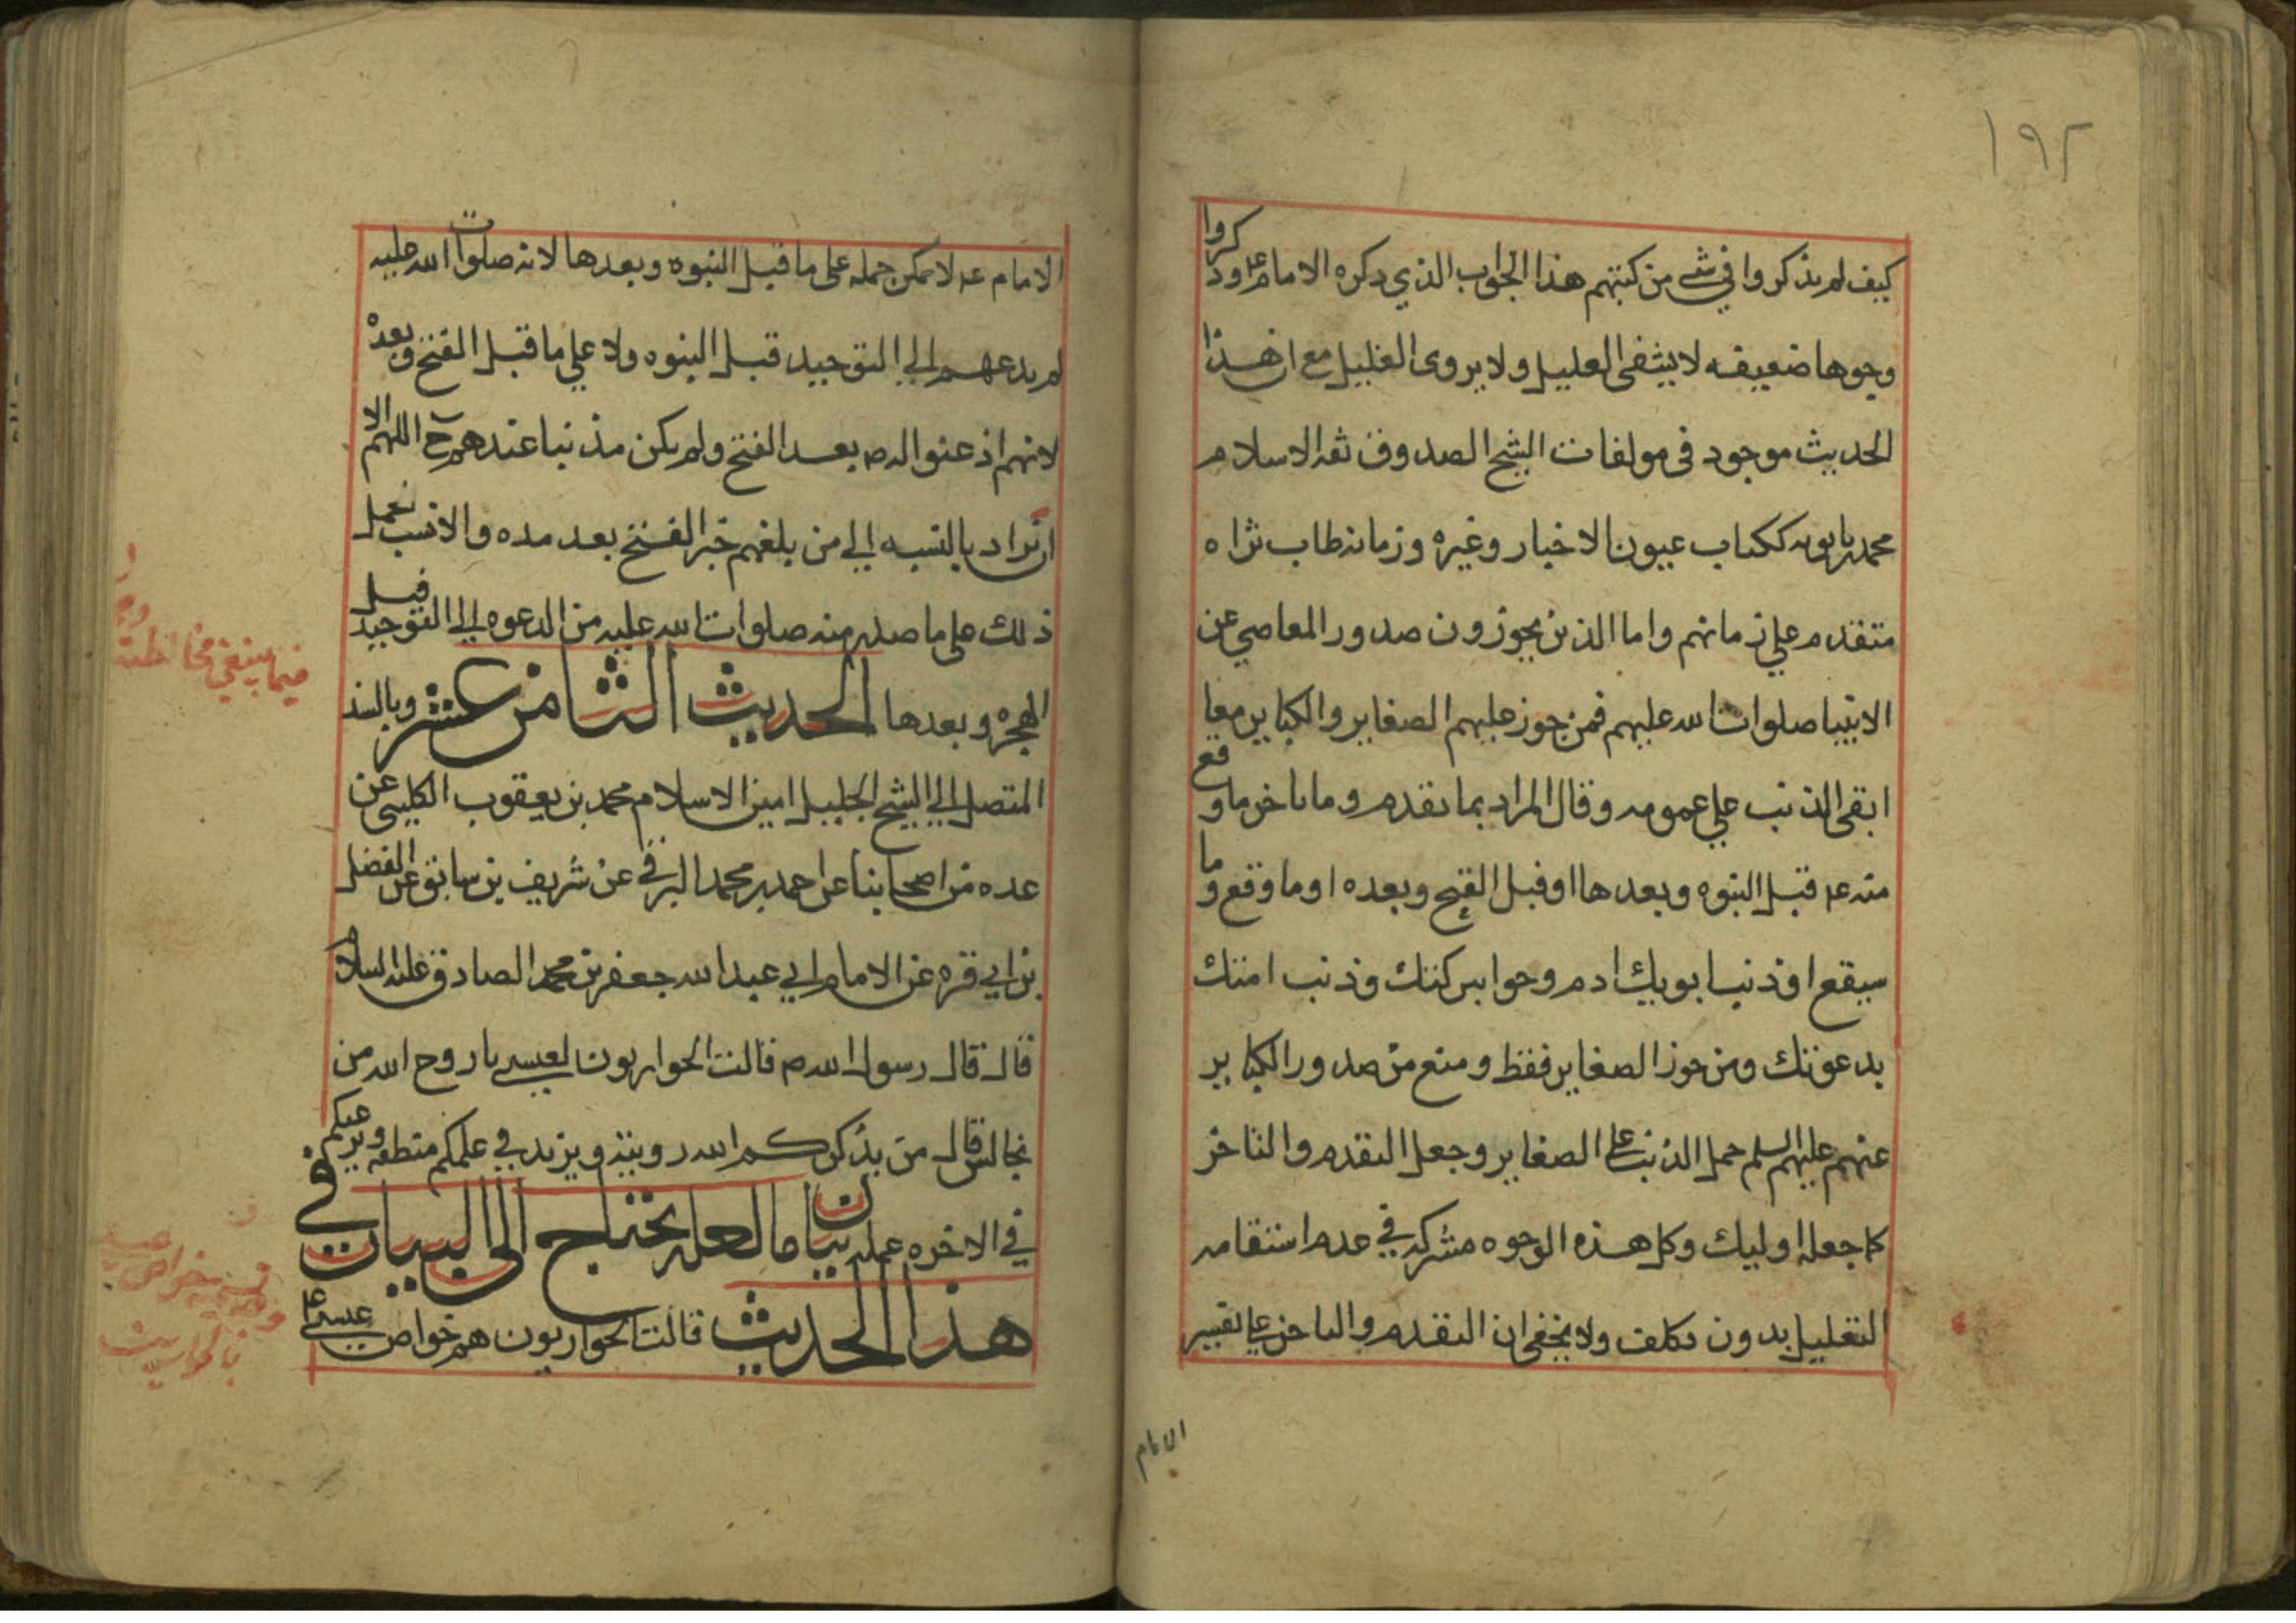 ١٩٢
كيف لم يذكروا في شي من كتبهم هذا الجواب الذي ذكره الامام ع وذكروا
وجوها ضعيفه لا يشفى العليل ولا يروى الغليل مع ان هذا
الحديث موجود في مولفات الشيخ الصدوق ثقه الاسلام
محمد بن بابويه ككتاب عيون الاخبار وغيره وزمانه طاب ثراه
متقدم علي زمانهم واما الذين يجوزون صدور المعاصي عن
الانبيا صلوات الله عليهم فمن جوز عليهم الصغاير والكباير معا
ابقى الذنب علي عمومه وقال المراد بما تقدم وما تاخر ما وقع
منه ع قبل النبوه وبعدها او قبل الفتح وبعده او ما وقع وما
سيقع او ذنب ابويك ادم وحوا ببركتك وذنب امتك
بدعوتك ومن جوز الصغاير فقط ومنع من صدور الكباير
عنهم عليهم السلم حمل الذنب على الصغاير وجعل التقدم والتاخر
كما جعله اوليك وكل هذه الوجوه مشتركه في عدم استقامه
التعليل بدون تكلف ولا يخفى ان التقدم والتاخر على تفسير
الامام
الامام ع لا يمكن حمله على ما قبل النبوه وبعدها لانه صلوات الله عليه
لم يدعهم الي التوحيد قبل النبوه ولا علي ما قبل الفتح وبعده
لانهم اذعنوا له ص بعد الفتح ولم يكن مذنبا عندهم ح اللهم الا
ان يراد بالنسبه الي من بلغهم خبر الفتح بعد مده والانسب حمل
ذلك على ما صدر منه صلوات الله عليه من الدعوه الي التوحيد قبل
الهجره وبعدها الحديث الثامن عشر وبالسند
المتصل الي الشيخ الجليل امين الاسلام محمد بن يعقوب الكليني عن
عده من اصحابنا عن احمد بن محمد البرقي عن شريف بن سابق عن الفضل
بن ابي قره عن الامام ابي عبد الله جعفر بن محمد الصادق عليه السلام
قال قال رسول الله ص قالت الحواريون لعيسى يا روح الله من
نجالس قال من يذكركم الله رويته ويزيد في علمكم منطقه ويرغبكم
في الاخره عمله بيان ما لعله يحتاج الى البيان في
هذا الحديث قالت الحواريون هم خواص عيسى ع
فيما ينبغي مخالطته